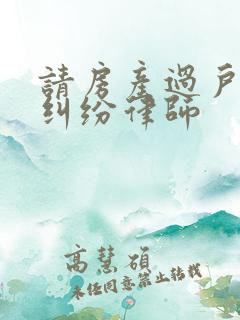 請房產過戶
糾紛律師
高慧碩
未經同意禁止轉載